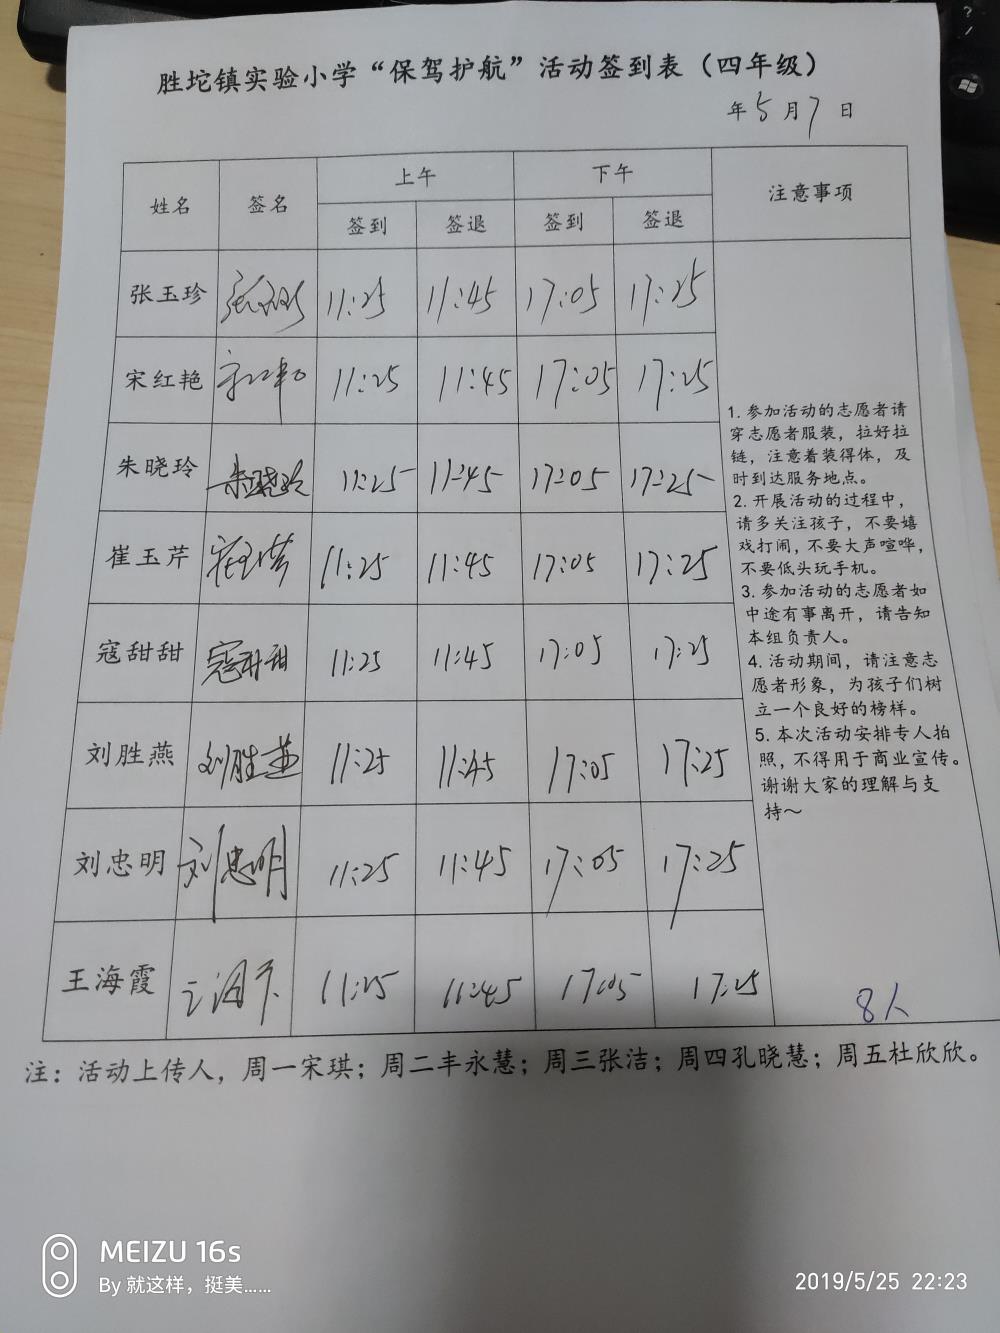 胜坨镇实验小学“保驾护航”活动签到表（四年级）
年5月7日
姓名 签名 上午 下午 注意事项
签到 签退 签到 签退
张玉珍 张玉珍 11:25 11:45 17:05 17:25
宋红艳 宋红艳 11:25 11:45 17:05 17:25
朱晓玲 朱晓玲 11:25 11:45 17:05 17:25
崔玉芹 崔玉芹 11:25 11:45 17:05 17:25
寇甜甜 寇甜甜 11:25 11:45 17:05 17:25
刘胜燕 刘胜燕 11:25 11:45 17:05 17:25
刘忠明 刘忠明 11:25 11:45 17:05 17:25
王海霞 王海霞 11:25 11:45 17:05 17:25
1. 参加活动的志愿者请
穿志愿者服装，拉好拉
链，注意着装得体，及
时到达服务地点。
2. 开展活动的过程中，
请多关注孩子，不要嬉
戏打闹，不要大声喧哗，
不要低头玩手机。
3. 参加活动的志愿者如
中途有事离开，请告知
本组负责人。
4. 活动期间，请注意志
愿者形象，为孩子们树
立一个良好的榜样。
5. 本次活动安排专人拍
照，不得用于商业宣传。
谢谢大家的理解与支
持～
8人
注：活动上传人，周一宋琪；周二丰永慧；周三张洁；周四孔晓慧；周五杜欣欣。
MEIZU 16s
By 就这样，挺美......
2019/5/25 22:23